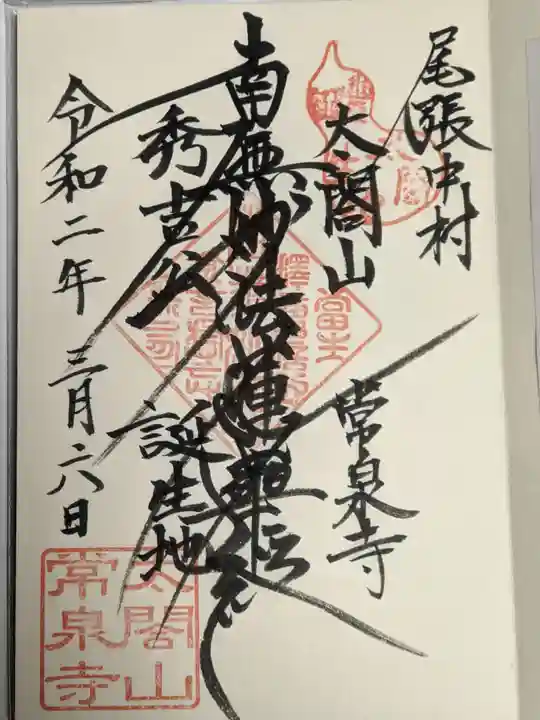 尾張中村
太閤山
常泉寺
南無妙法蓮華経
秀吉公
誕生地
令和二年 三月六日
太閤山
常泉寺